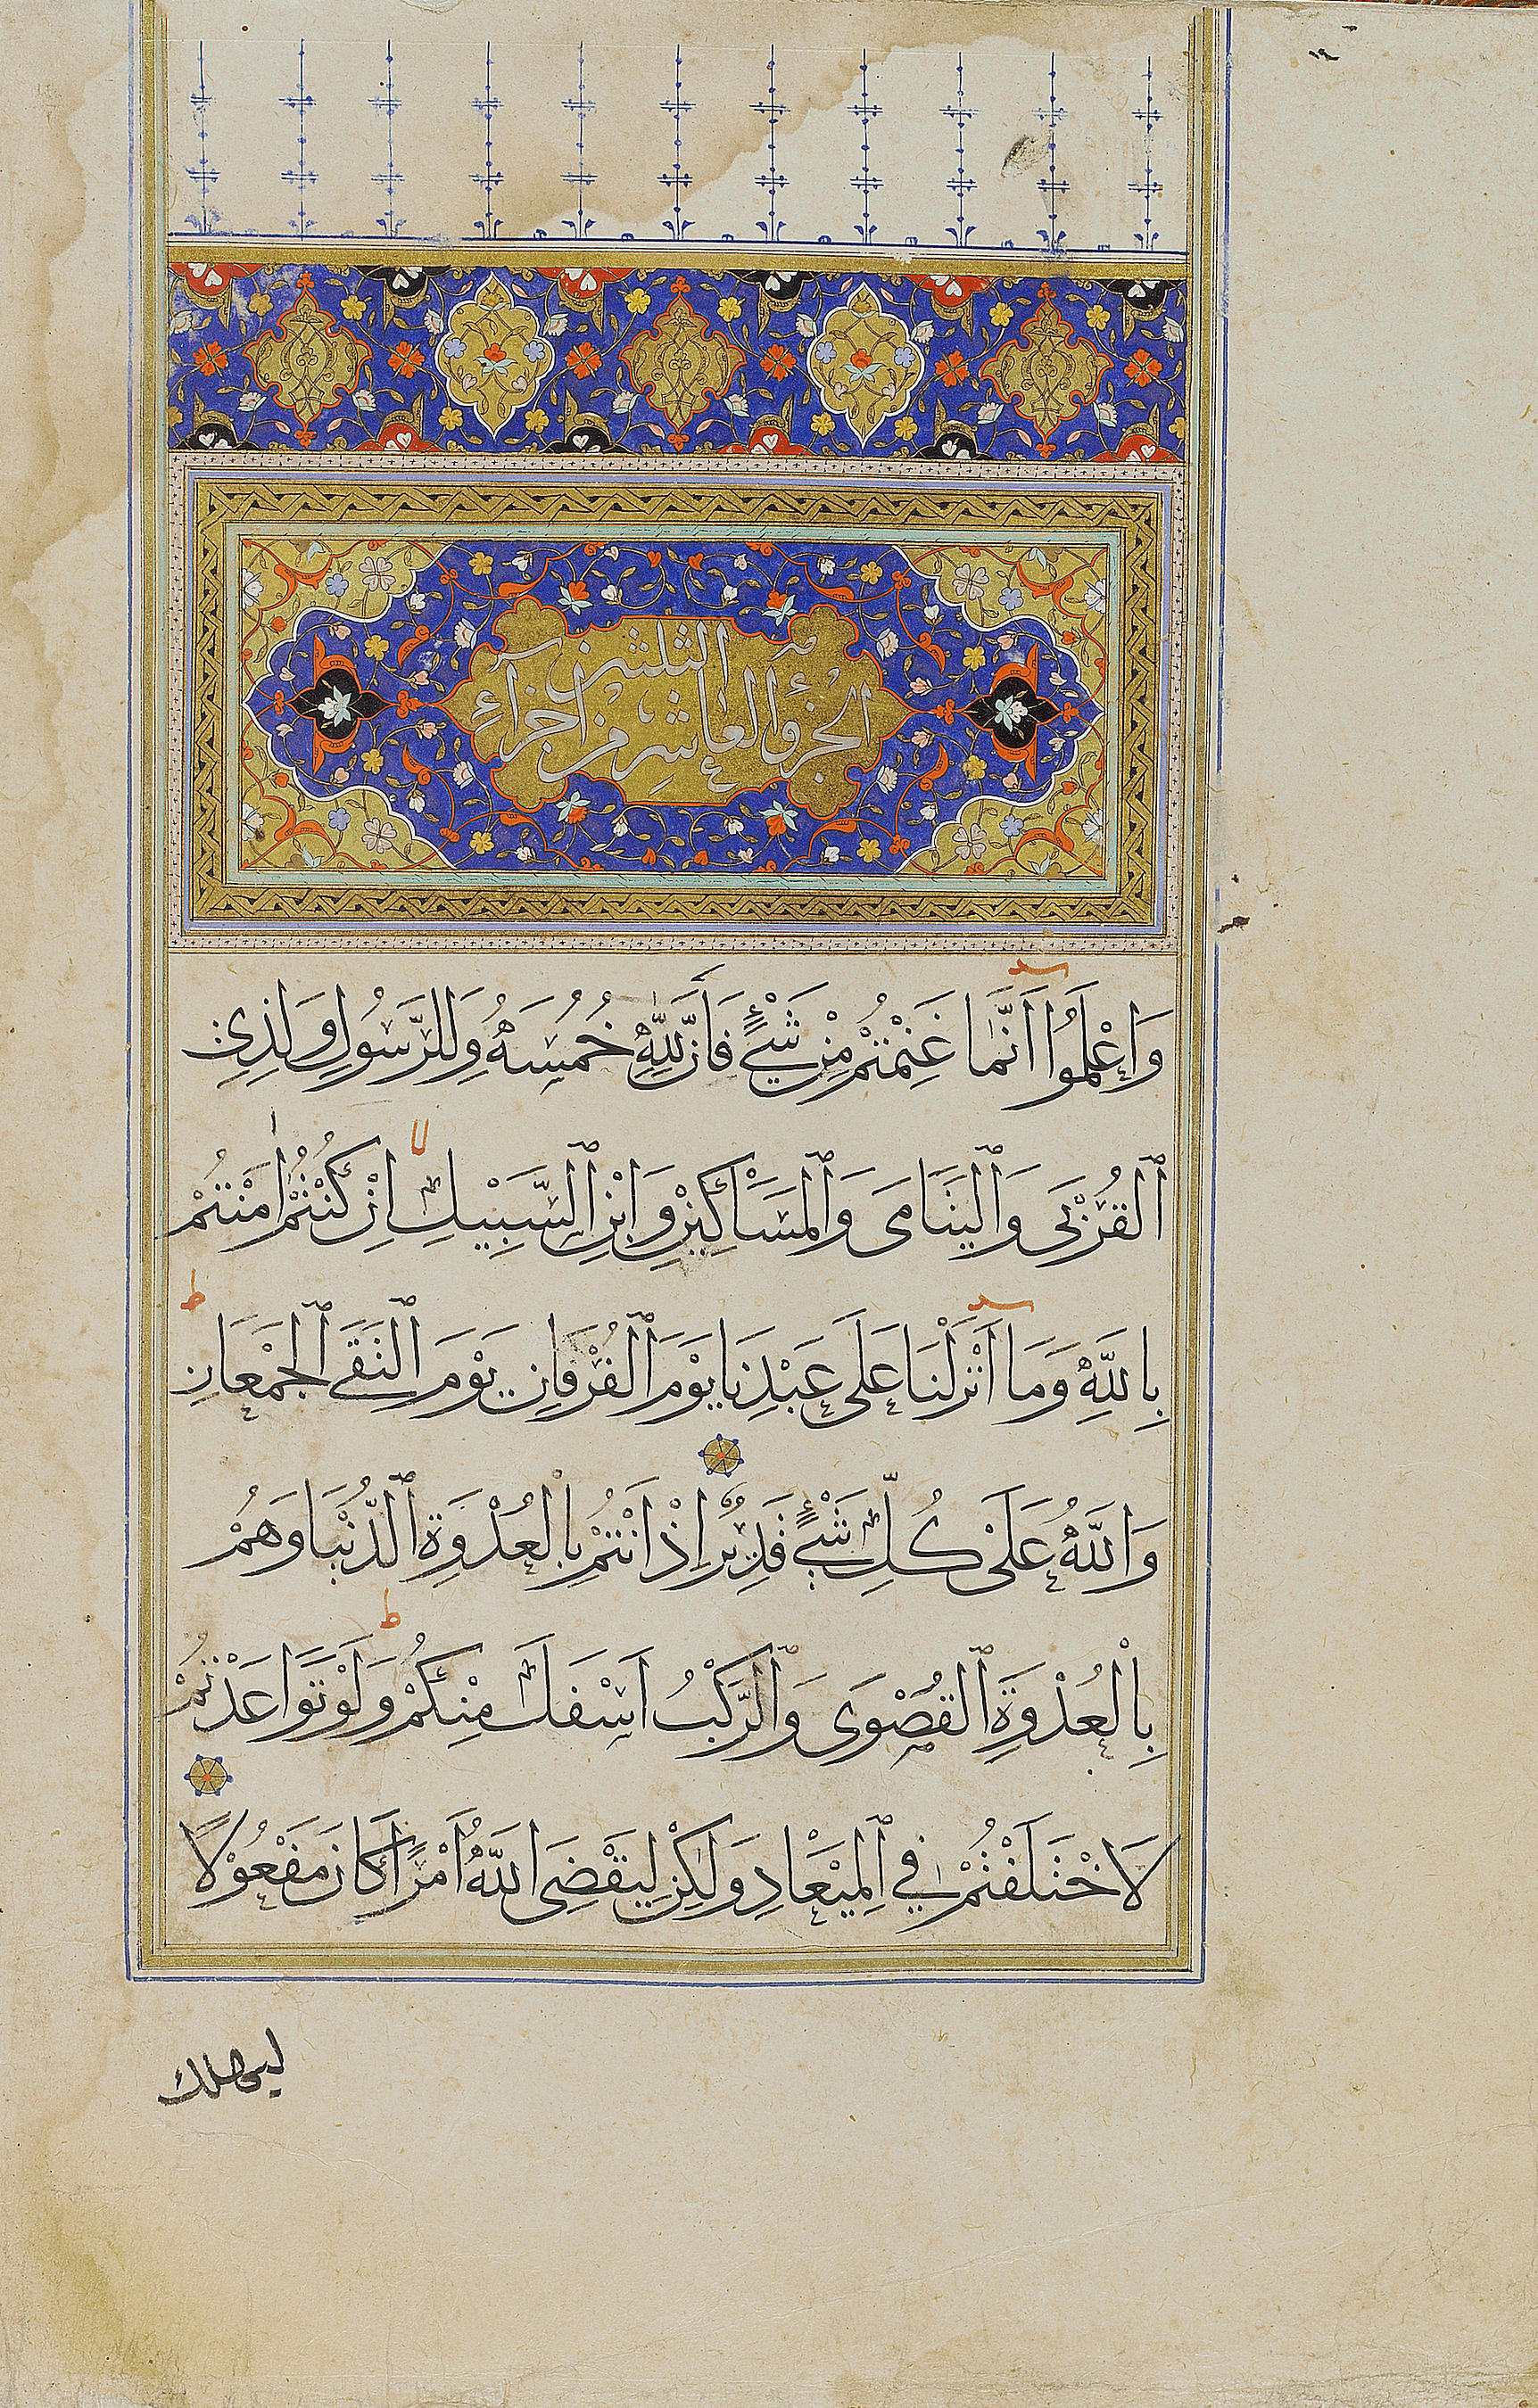 ١٩
الجزؤ العاشر من اجزآء الثلثين
وَاعْلَمُوا اَنَّمَا غَنِمْتُمْ مِنْ شَيْءٍ فَاَنَّ لِلّٰهِ خُمُسَهُ وَلِلرَّسُولِ وَلِذِي
الْقُرْبَى وَالْيَتَامَى وَالْمَسَاكِيْنِ وَابْنِ السَّبِيْلِ اِنْ كُنْتُمْ اٰمَنْتُمْ
بِاللّٰهِ وَمَا اَنْزَلْنَا عَلَى عَبْدِنَا يَوْمَ الْفُرْقَانِ يَوْمَ الْتَقَى الْجَمْعَانِ
وَاللّٰهُ عَلَى كُلِّ شَيْءٍ قَدِيْرٌ اِذْ اَنْتُمْ بِالْعُدْوَةِ الدُّنْيَا وَهُمْ
بِالْعُدْوَةِ الْقُصْوَى وَالرَّكْبُ اَسْفَلَ مِنْكُمْ وَلَوْ تَوَاعَدْتُمْ
لَاخْتَلَفْتُمْ فِي الْمِيْعَادِ وَلٰكِنْ لِيَقْضِيَ اللّٰهُ اَمْرًا كَانَ مَفْعُوْلًا
ليهلك